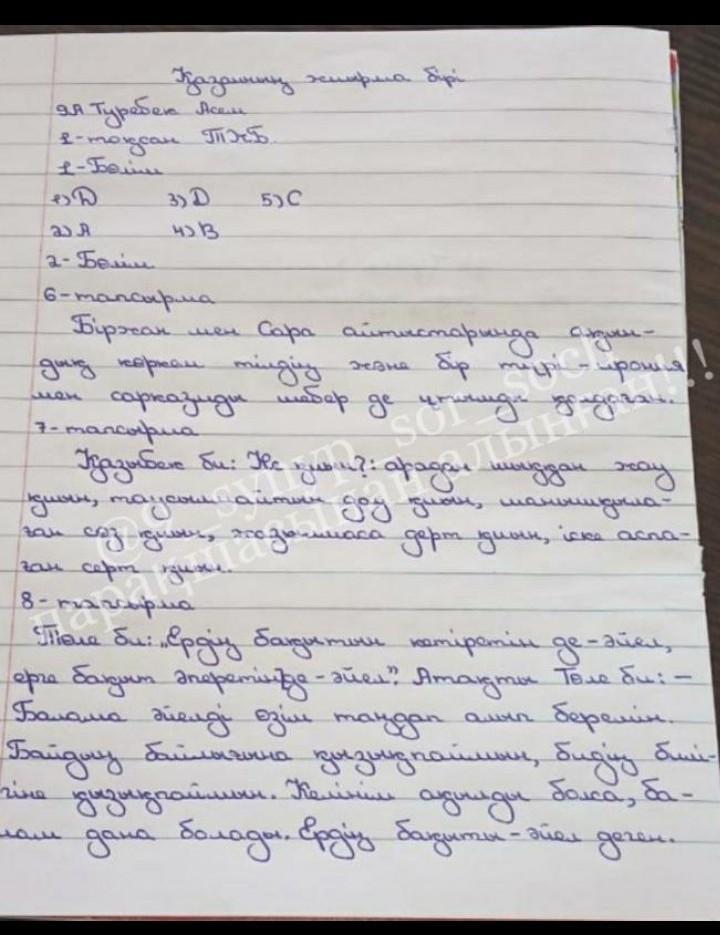 Қазанның жиырма бірі
9А Туребек Асем
1-тоқсан ТЖБ
1-Бөлім
1) D 3) D 5) C
2) A 4) B
2-Бөлім
6-тапсырма
Біржан мен Сара айтыстарында ақын-
дық көркем тілдің және бір түрі - ирония
мен сарказмды шебер де ұтымды қолдаған.
7-тапсырма
Қазыбек би: Не қиын?: арадан шыққан жау
қиын, таусылмайтын дау қиын, шанышқыла-
ған сөз қиын, жазылмаса дерт қиын, іске аспа-
ған серт қиын.
8-тапсырма
Төле би: „Ердің бақытын кетіретін де-әйел,
ерге бақыт әперетін де-әйел". Атақты Төле би: -
Балама әйелді өзім таңдап алып беремін.
Байдың байлығына қызықпаймын, бидің билі-
гіне қызықпаймын. Келінім ақылды болса, ба-
лам дана болады. Ердің бақыты-әйел деген.
@9_synyp_sor_soch
парақшасынан алынған!!!